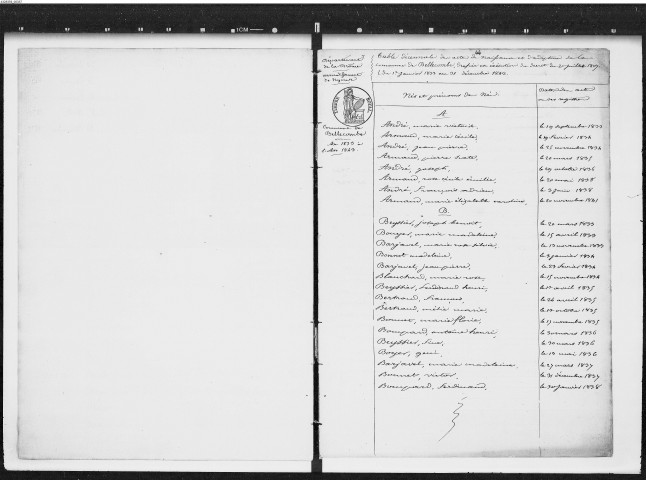 Département
de la Drôme
arrondissement
de Nyons
Commune de
Bellecombe
Table décennale des actes de naissance et d'adoption de la
commune de Bellecombe, dressée en exécution du décret du 20 juillet 1807
(du 1er janvier 1833 au 31 décembre 1842
Noms et prénoms des Nés
Dates des actes
A
André, marie victoire le 19 septembre 1833
Armand, marie cécile le 19 février 1834
André, jean pierre le 25 novembre 1834
Armand, pierre le 20 mars 1835
André, joseph le 29 octobre 1836
Armand, rose émilie le 20 mai 1838
André, françois adrien le 3 juin 1838
Armand, marie élizabeth caroline le 20 novembre 1841
B
Beyssier, joseph benoit le 20 mars 1833
Bouyer, marie madeleine le 15 avril 1833
Barjavel, marie rose le 13 novembre 1833
Bonnet madeleine le 9 janvier 1834
Barjavel, jean pierre le 27 février 1834
Blanchard, marie rose le 15 novembre 1834
Beyssier, ferdinand henri le 17 avril 1835
Bertrand, le 26 avril 1835
Bertrand, mélie marie le 18 octobre 1835
Bonnet, marie le 17 novembre 1835
Bompard, antoine henri le 30 mars 1836
Beyssier, le 30 mars 1836
Boyer, le 18 mai 1836
Barjavel, marie madeleine le 27 mars 1837
Bonnet, victor le 31 décembre 1837
Bompard, ferdinand le 30 janvier 1838